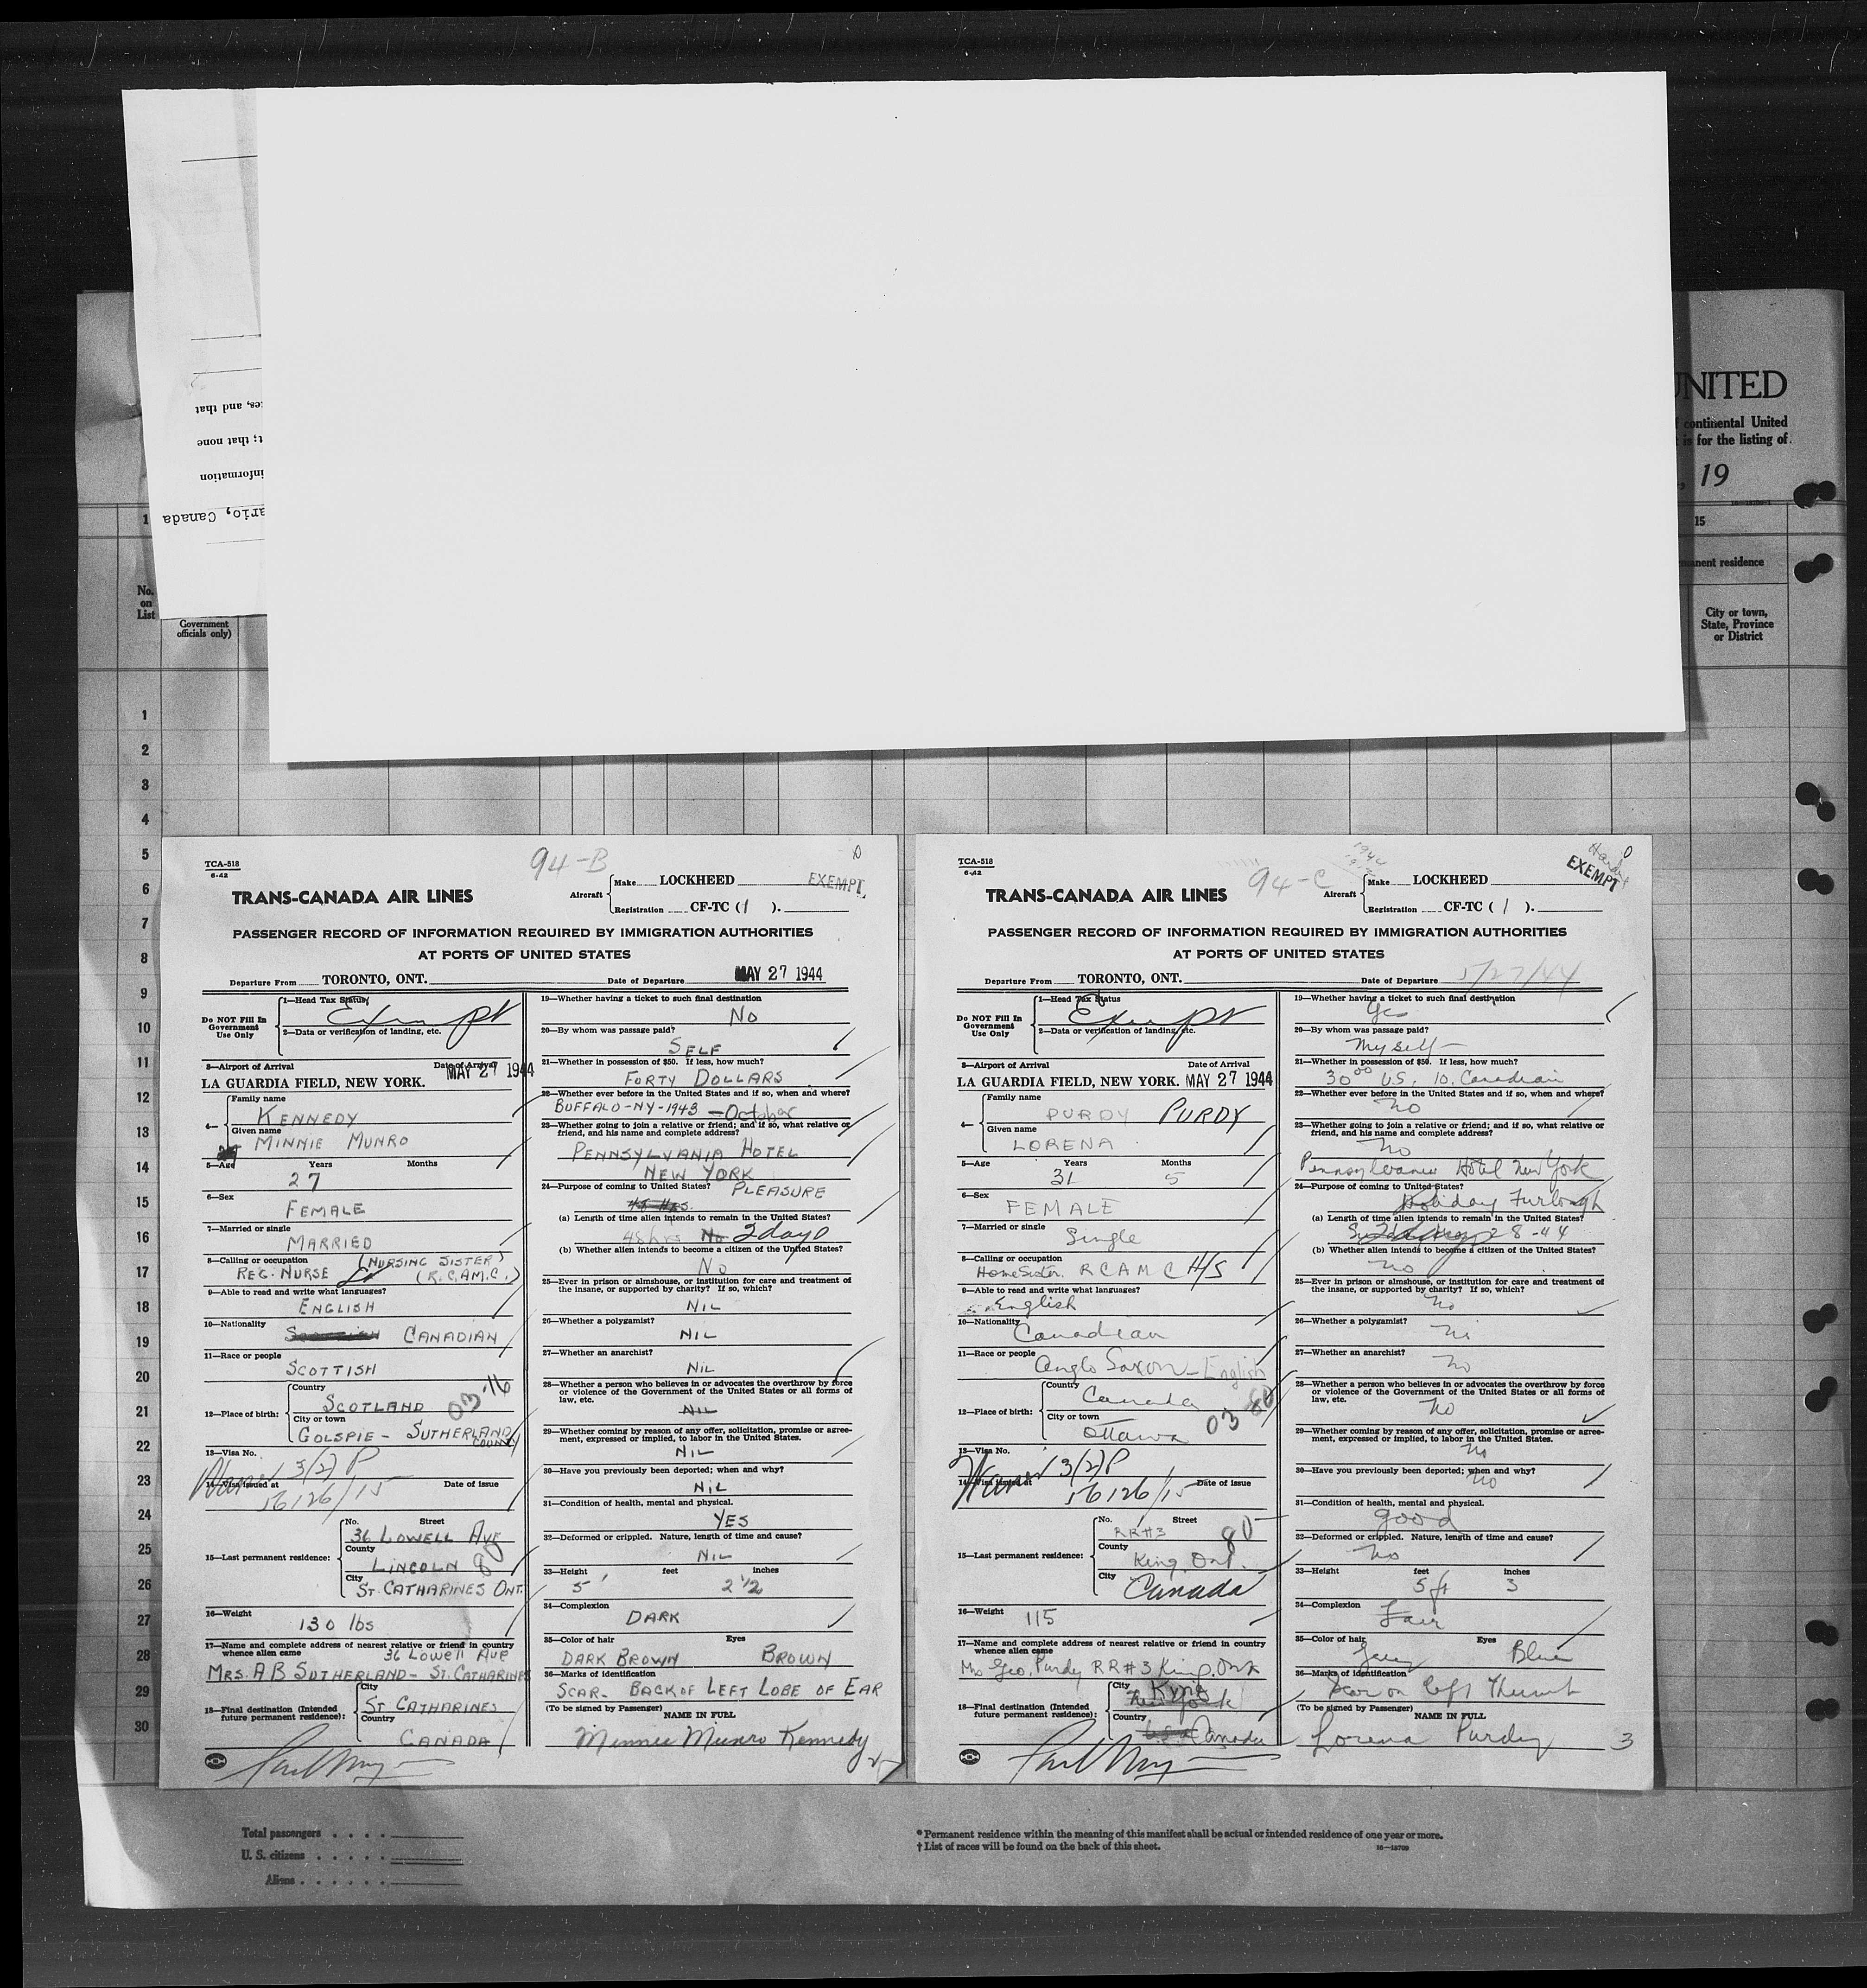 UNITED
continental United
is for the listing of
, 19
15
residence
City or town,
State, Province
or District
es, and that
t; that none
information
ario, Canada
No.
on
List
Government
officials only)
1
1
2
3
4
5
6
7
8
9
10
11
12
13
14
15
16
17
18
19
20
21
22
23
24
25
26
27
28
29
30
TCA-518
6-42
94-B
EXEMPT
TRANS-CANADA AIR LINES
Aircraft
Make LOCKHEED
Registration CF-TC (1 ).
PASSENGER RECORD OF INFORMATION REQUIRED BY IMMIGRATION AUTHORITIES
AT PORTS OF UNITED STATES
Departure From TORONTO, ONT. Date of Departure MAY 27 1944
Do NOT Fill In
Government
Use Only
1—Head Tax Status
Exempt
2—Data or verification of landing, etc.
3—Airport of Arrival Date of Arrival
LA GUARDIA FIELD, NEW YORK. MAY 27 1944
4—
Family name
KENNEDY
Given name
MINNIE MUNRO
5—Age Years Months
27
6—Sex
FEMALE
7—Married or single
MARRIED
8—Calling or occupation (NURSING SISTER)
REG. NURSE (R.C.A.M.C.)
9—Able to read and write what languages?
ENGLISH
10—Nationality
CANADIAN
11—Race or people
SCOTTISH
12—Place of birth:
Country
SCOTLAND
03-16
City or town
GOLSPIE - SUTHERLAND
COUNTY
13—Visa No.
3/(2) P
14—Visa issued at Date of issue
56126/15
15—Last permanent residence:
No. Street
36 LOWELL AVE
County
LINCOLN 80
City
ST. CATHARINES ONT.
16—Weight
130 lbs
17—Name and complete address of nearest relative or friend in country
whence alien came 36 Lowell Ave
MRS. A B SUTHERLAND - ST. CATHARINES
18—Final destination (Intended
future permanent residence):
City
ST CATHARINES
Country
CANADA
19—Whether having a ticket to such final destination
No
20—By whom was passage paid?
SELF
21—Whether in possession of $50. If less, how much?
FORTY DOLLARS
22—Whether ever before in the United States and if so, when and where?
BUFFALO-NY-1943 - October
23—Whether going to join a relative or friend; and if so, what relative or
friend, and his name and complete address?
PENNSYLVANIA HOTEL
NEW YORK
24—Purpose of coming to United States? PLEASURE
48 Hrs.
(a) Length of time alien intends to remain in the United States?
48 hrs No 2 days
(b) Whether alien intends to become a citizen of the United States?
No
25—Ever in prison or almshouse, or institution for care and treatment of
the insane, or supported by charity? If so, which?
NIL
26—Whether a polygamist?
NIL
27—Whether an anarchist?
NIL
28—Whether a person who believes in or advocates the overthrow by force
or violence of the Government of the United States or all forms of
law, etc.
NIL
29—Whether coming by reason of any offer, solicitation, promise or agree-
ment, expressed or implied, to labor in the United States.
NIL
30—Have you previously been deported; when and why?
NIL
31—Condition of health, mental and physical.
YES
32—Deformed or crippled. Nature, length of time and cause?
NIL
33—Height feet inches
5' 2 1/2
34—Complexion
DARK
35—Color of hair Eyes
DARK BROWN BROWN
36—Marks of identification
SCAR- BACK OF LEFT LOBE OF EAR
(To be signed by Passenger)
NAME IN FULL
Minnie Munro Kennedy
TCA-518
6-42
94-C
EXEMPT
TRANS-CANADA AIR LINES
Aircraft
Make LOCKHEED
Registration CF-TC ( 1 ).
PASSENGER RECORD OF INFORMATION REQUIRED BY IMMIGRATION AUTHORITIES
AT PORTS OF UNITED STATES
Departure From TORONTO, ONT. Date of Departure 5/27/44
Do NOT Fill In
Government
Use Only
1—Head Tax Status
Exempt
2—Data or verification of landing, etc.
3—Airport of Arrival Date of Arrival
LA GUARDIA FIELD, NEW YORK. MAY 27 1944
4—
Family name
PURDY PURDY
Given name
LORENA
5—Age Years Months
31 5
6—Sex
FEMALE
7—Married or single
Single
8—Calling or occupation
Home Sister. R C A M C H/S
9—Able to read and write what languages?
English
10—Nationality
Canadian
11—Race or people
Anglo Saxon - English
12—Place of birth:
Country
Canada
03 80
City or town
Ottawa
13—Visa No.
3/(2) P
14—Visa issued at Date of issue
56126/15
15—Last permanent residence:
No. Street
RR#3 80
County
King Ont.
City
Canada
16—Weight
115
17—Name and complete address of nearest relative or friend in country
whence alien came
Mrs Geo. Purdy RR#3 King. Ont
18—Final destination (Intended
future permanent residence):
City King
New York
Country
U.S.A Canada
19—Whether having a ticket to such final destination
Yes
20—By whom was passage paid?
Myself -
21—Whether in possession of $50. If less, how much?
30.00 U.S. 10. Canadian
22—Whether ever before in the United States and if so, when and where?
No
23—Whether going to join a relative or friend; and if so, what relative or
friend, and his name and complete address?
No
Pennsylvania Hotel New York
24—Purpose of coming to United States?
Holiday Furlough
(a) Length of time alien intends to remain in the United States?
28-44
(b) Whether alien intends to become a citizen of the United States?
No
25—Ever in prison or almshouse, or institution for care and treatment of
the insane, or supported by charity? If so, which?
No
26—Whether a polygamist?
No
27—Whether an anarchist?
No
28—Whether a person who believes in or advocates the overthrow by force
or violence of the Government of the United States or all forms of
law, etc.
No
29—Whether coming by reason of any offer, solicitation, promise or agree-
ment, expressed or implied, to labor in the United States.
No
30—Have you previously been deported; when and why?
No
31—Condition of health, mental and physical.
good
32—Deformed or crippled. Nature, length of time and cause?
No
33—Height feet inches
5 ft 3
34—Complexion
Fair
35—Color of hair Eyes
Blue
36—Marks of identification
Scar on left Thumb
(To be signed by Passenger)
NAME IN FULL
Lorena Purdy
3
Total passengers
U. S. citizens
Aliens
* Permanent residence within the meaning of this manifest shall be actual or intended residence of one year or more.
† List of races will be found on the back of this sheet.